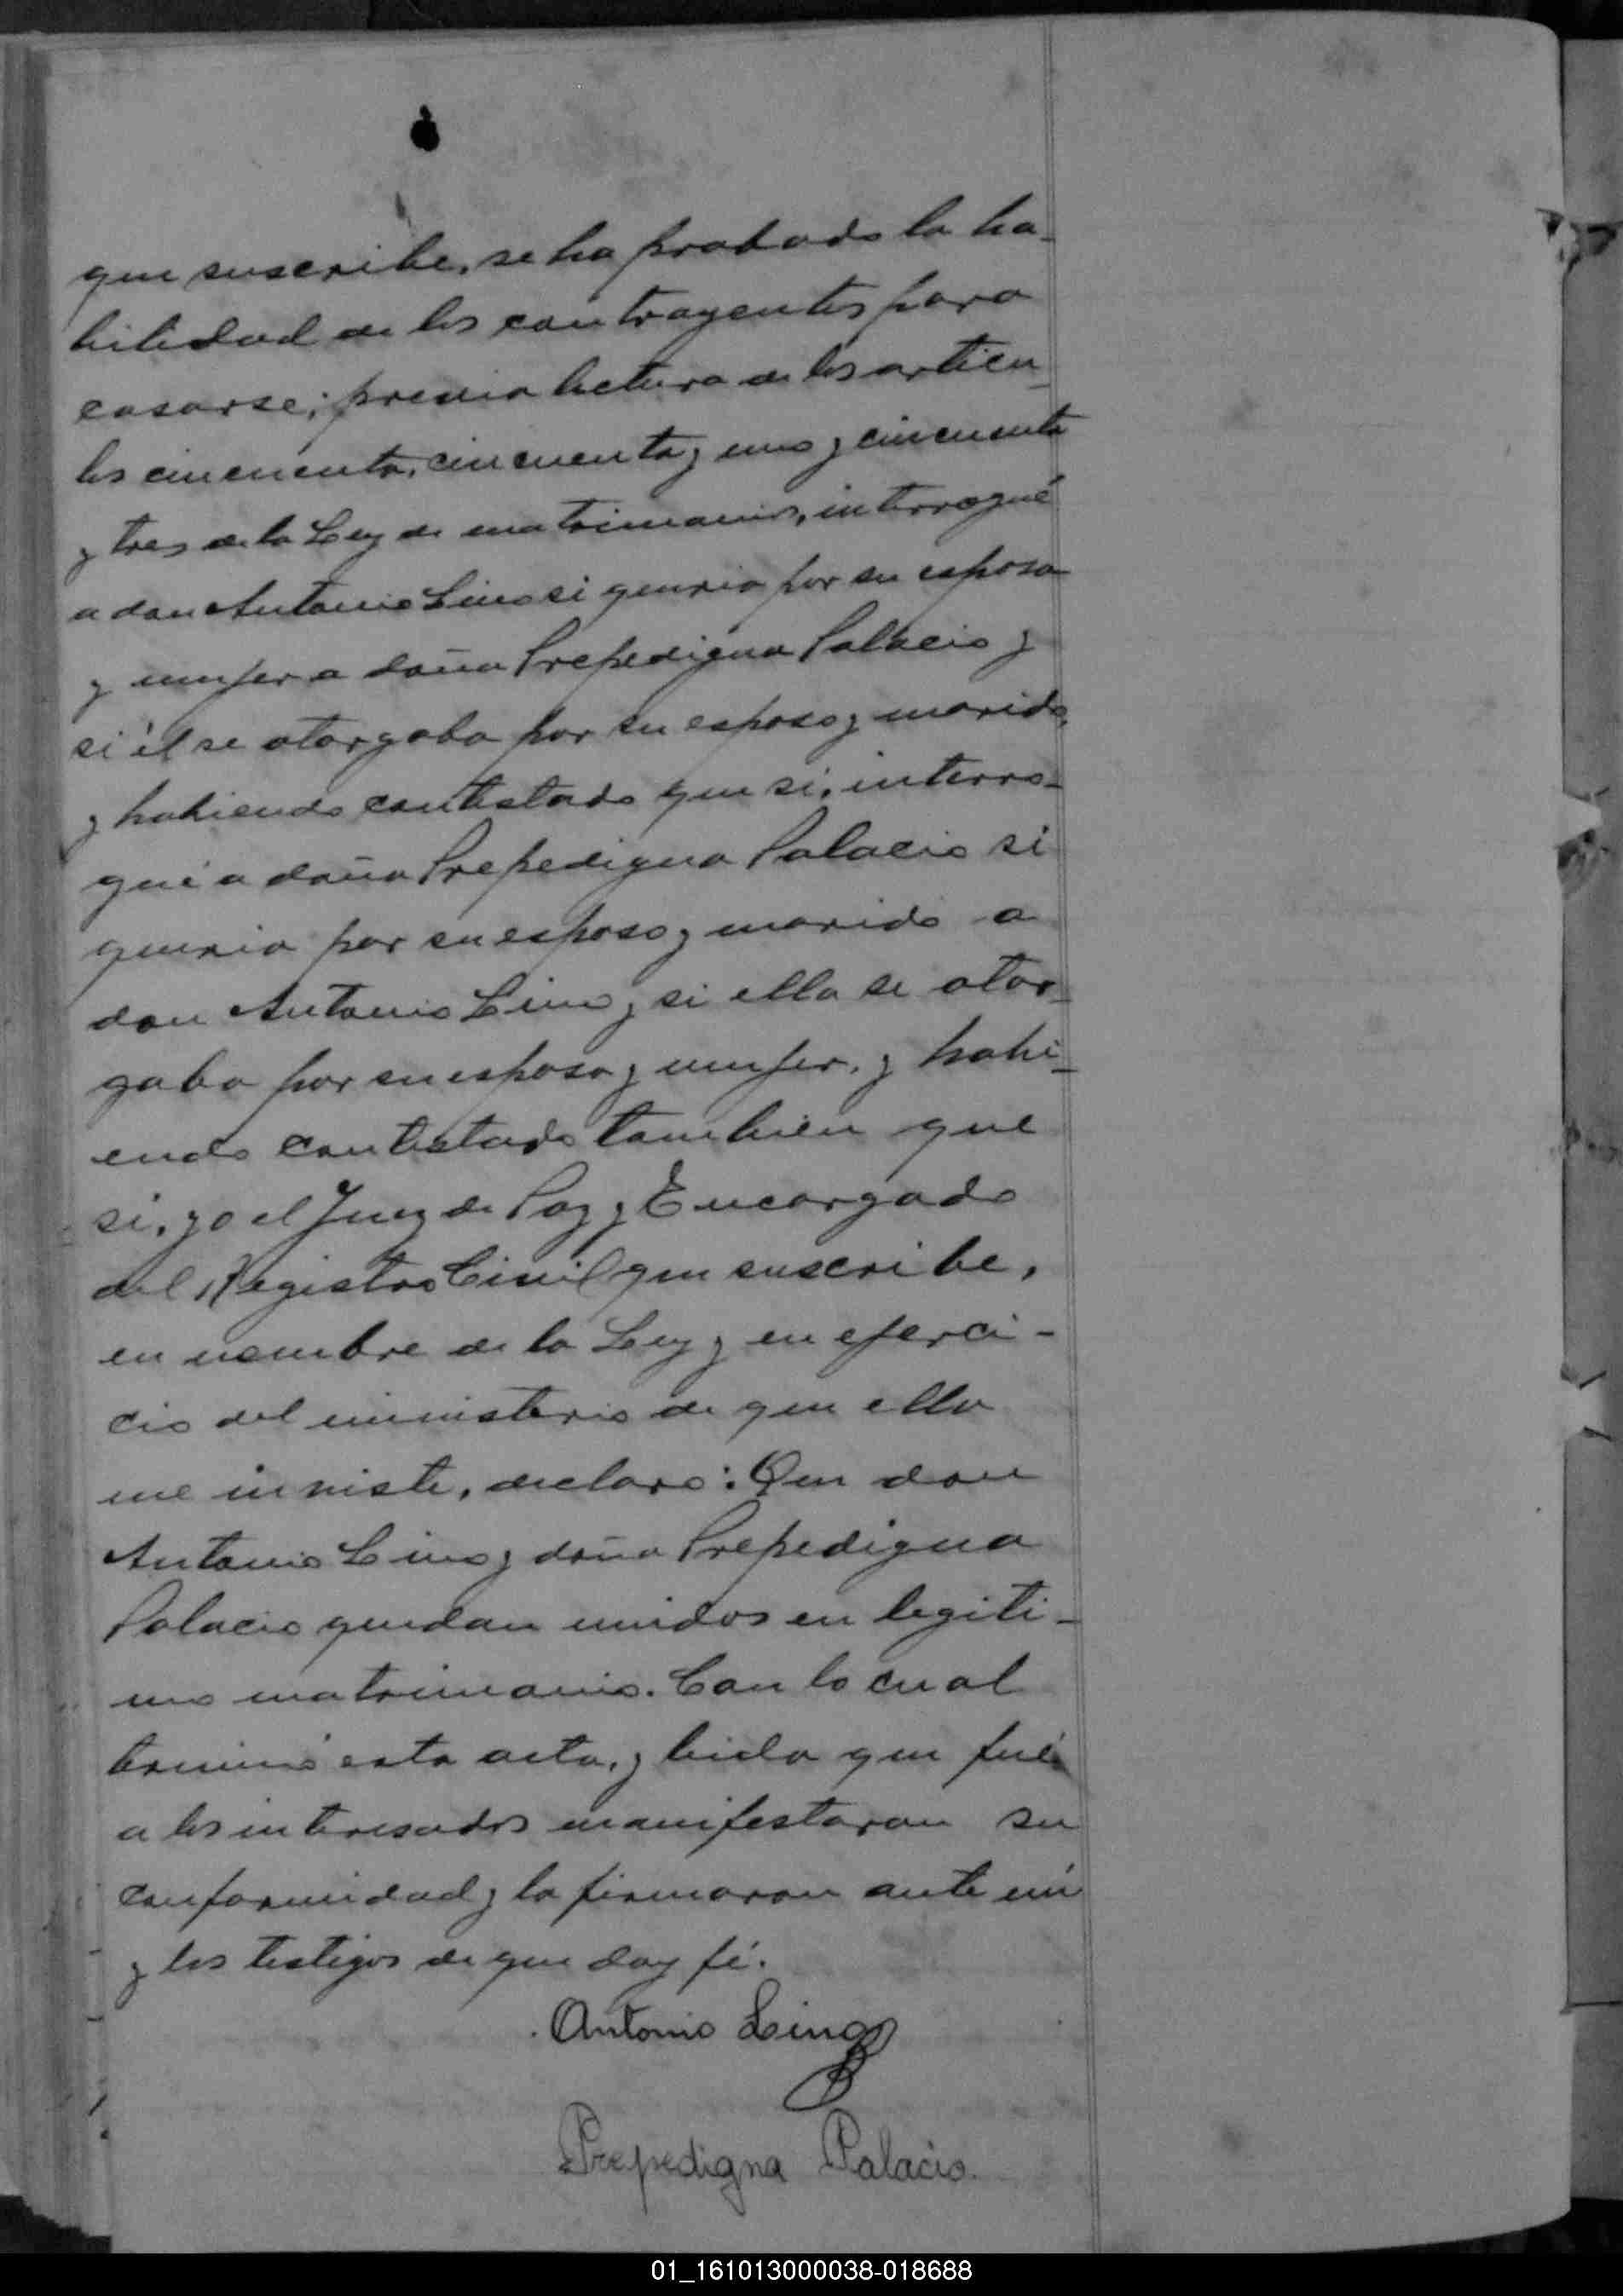 que suscribe, se ha probado la ha-
bilidad de los contrayentes para
casarse; previa lectura de los artícu-
los cincuenta, cincuenta y uno y cincuenta
y tres de la Ley de matrimonio, interrogué
a don Antonio Lino si quería por su esposa
y mujer a doña Prepedigna Palacio y
si él se otorgaba por su esposo y marido,
y habiendo contestado que si, interro-
gué a doña Prepedigna Palacio si
quería por su esposo y marido a
don Antonio Lino y si ella se otor-
gaba por su esposa y mujer, y habi-
endo contestado tambien que
si, yo el Juez de Paz y Encargado
del Registro Civil que suscribe,
en nombre de la Ley y en ejerci-
cio del ministerio de que ella
me inviste, declaro: Que don
Antonio Lino y doña Prepedigna
Palacio quedan unidos en legiti-
mo matrimonio. Con lo cual
terminó esta acta, y leida que fué
a los interesados manifestaron su
conformidad y la firmaron ante mí
y los testigos de que doy fé.
Antonio Lino
Prepedigna Palacio.
01_161013000038-018688